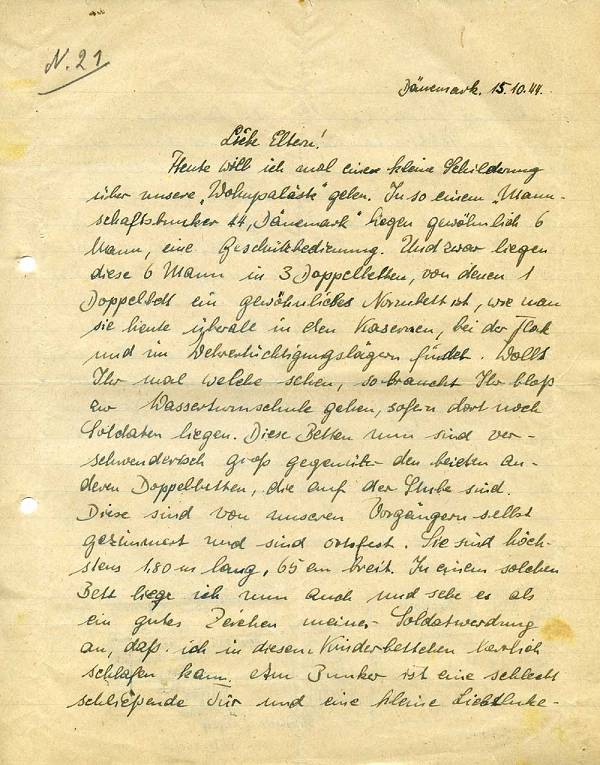 N. 21
Dänemark. 15.10.44.
Liebe Eltern!
Heute will ich mal eine kleine Schilderung
über unsere „Wohnpaläste" geben. In so einem „Mann-
schaftsbunker 44, Dänemark" liegen gewöhnlich 6
Mann, eine Geschützbedienung. Und zwar liegen
diese 6 Mann in 3 Doppelbetten, von denen 1
Doppelbett ein gewöhnliches Normbett ist, wie man
sie heute überall in den Kasernen, bei der Flak
und im Wehrertüchtigungslägern findet. Wollt
Ihr mal welche sehen, so braucht Ihr bloß
zur Wasserturmschule gehen, sofern dort noch
Soldaten liegen. Diese Betten nun sind ver-
schwenderisch groß gegenüber den beiden an-
deren Doppelbetten, die auf der Stube sind.
Diese sind von unseren Vorgängern selbst
gezimmert und sind ortsfest. Sie sind höch-
stens 1,80 m lang, 65 cm breit. In einem solchen
Bett liege ich nun auch und sehe es als
ein gutes Zeichen meiner Soldatwerdung
an, daß ich in diesem Kinderbettchen herrlich
schlafen kann. Am Bunker ist eine schlecht
schließende Tür und eine kleine Lichtluke-